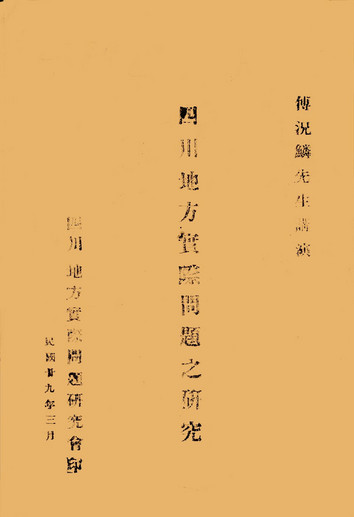 傅況鱗先生講演
四川地方實際問題之研究
四川地方實際問題研究會印
民國廿九年三月